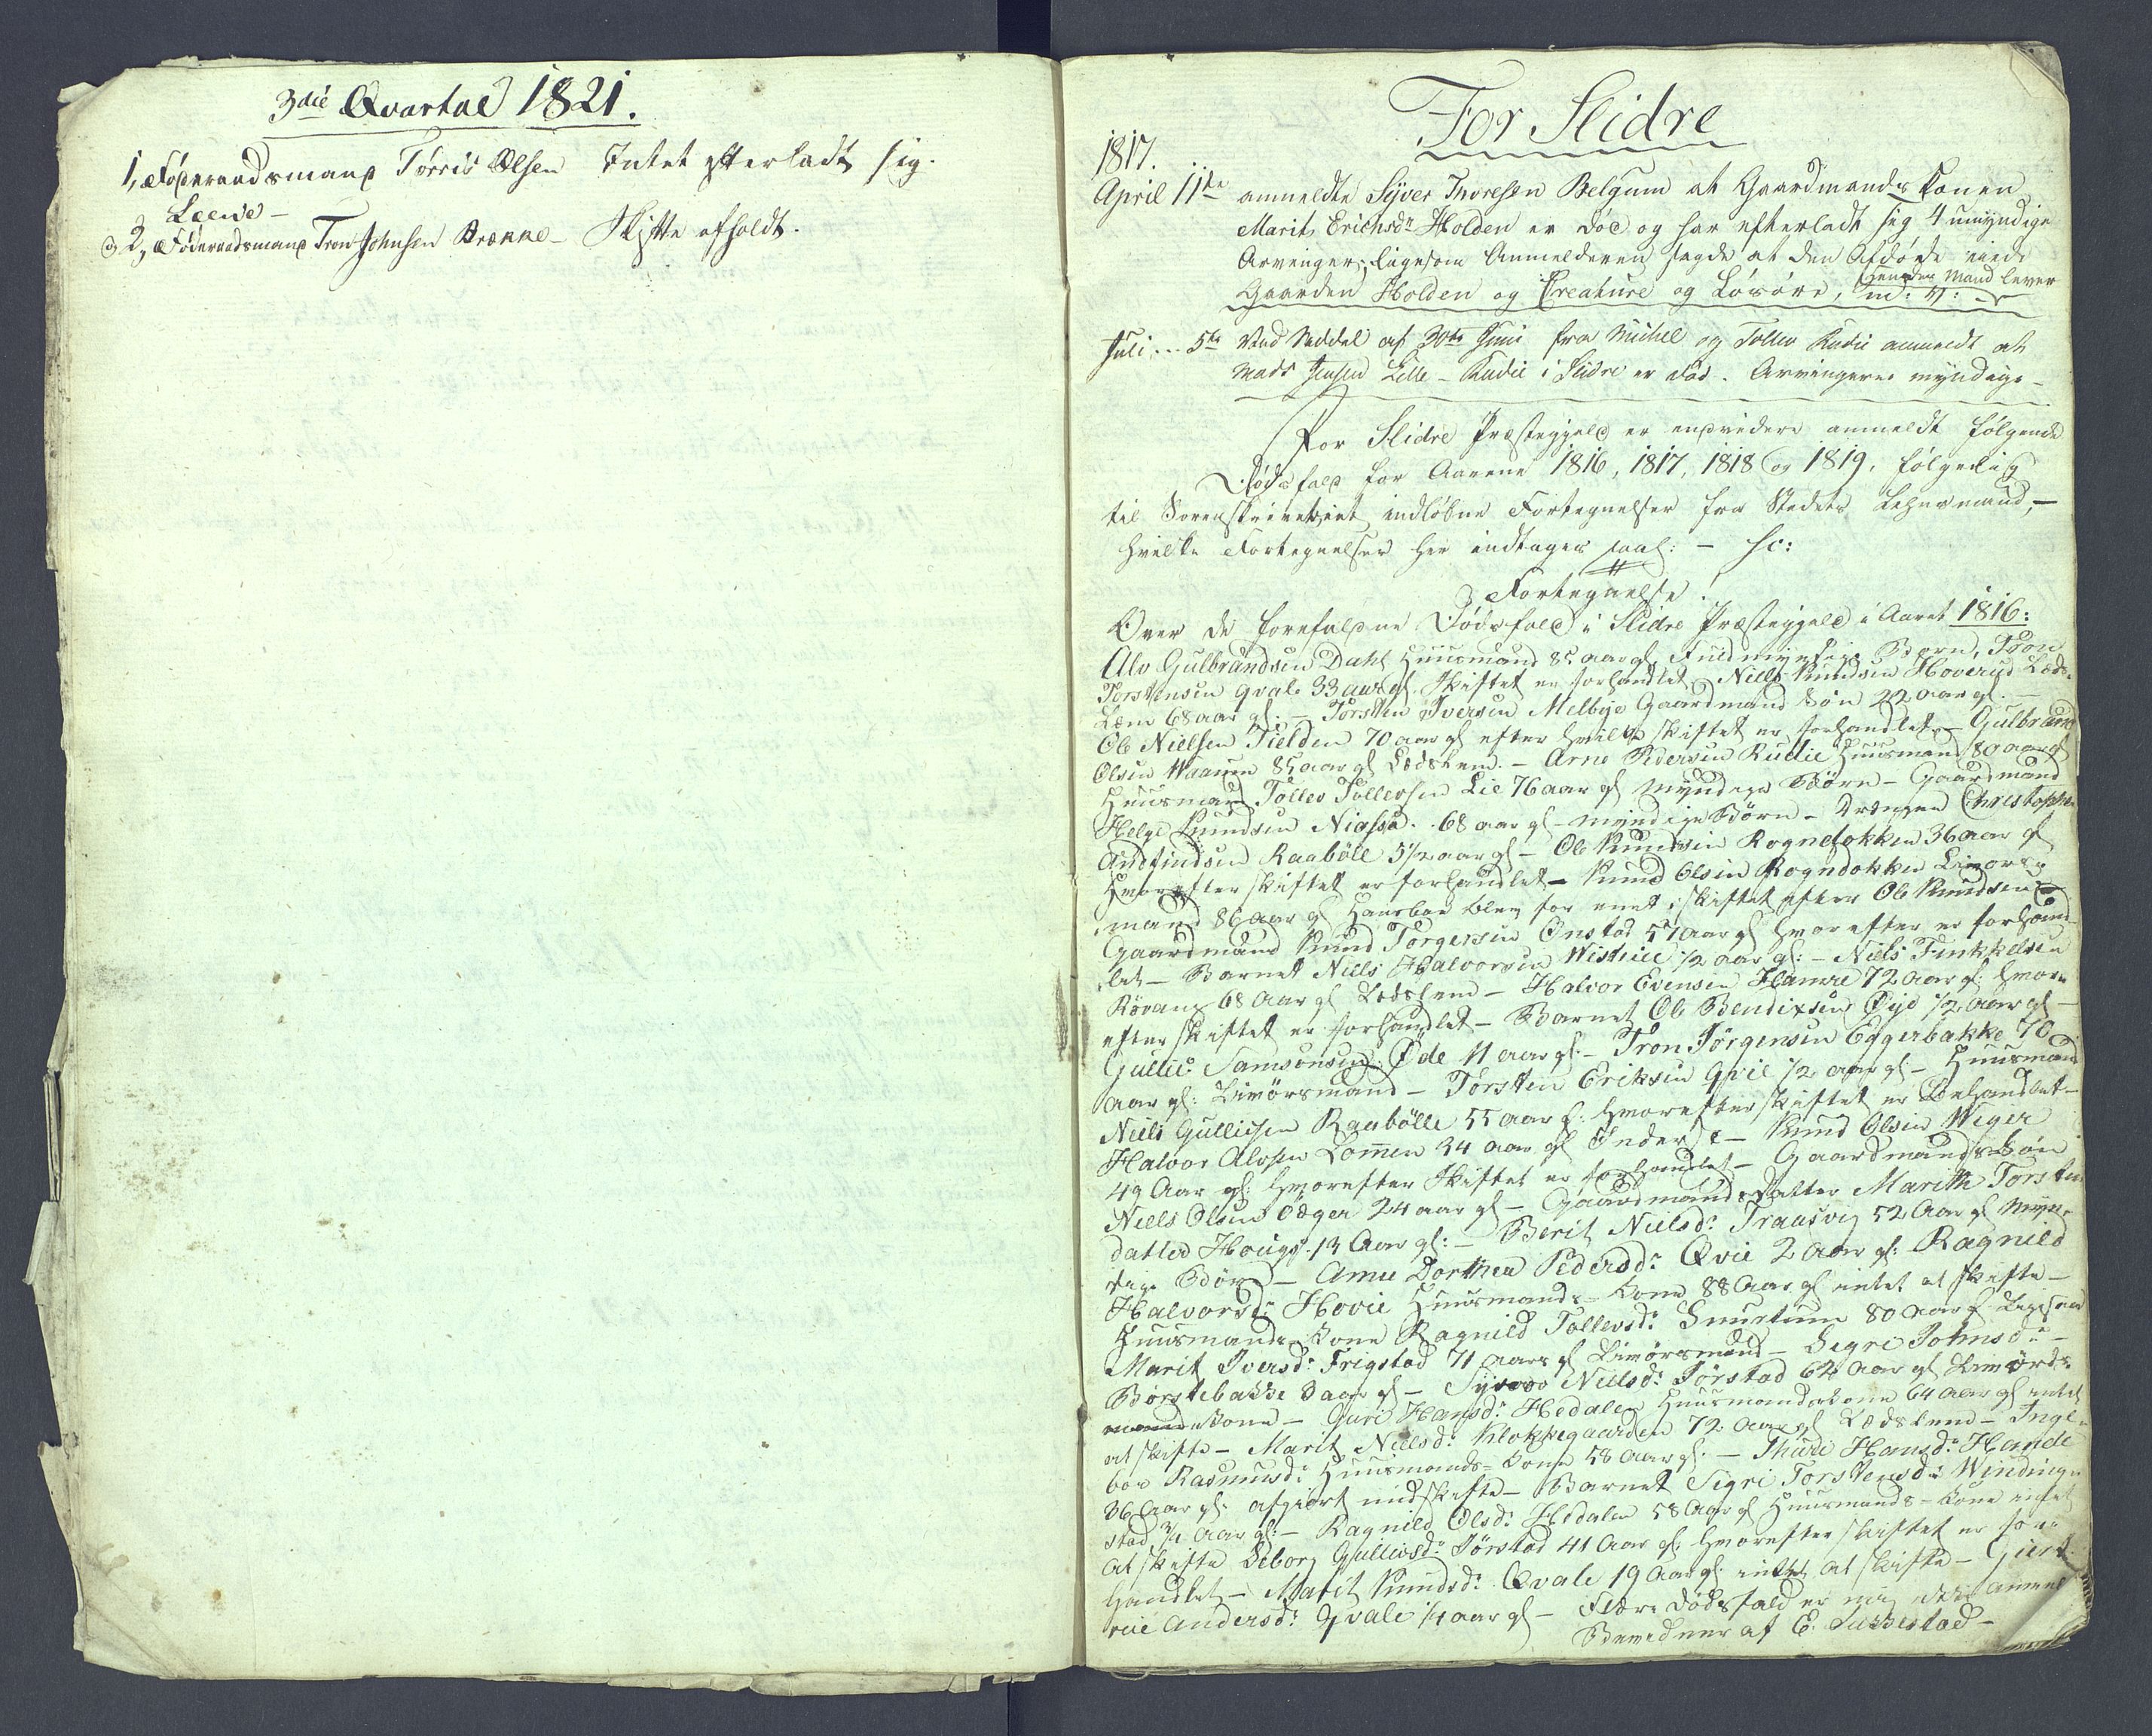 3die Qvartal 1821.
1, Føderaadsmand Torris Olsen Intet efterladt sig.
Leene -
2, Føderaadsmand Tron Johnsen Brænne - Skifte afholdt.
For Slidre
1817.
April 11te anmeldte Syver Thoresen Belgum at Gaardmands Konen
Marit Erichsdr Holden er død og har efterladt sig 4 umyndige
Arvinger, ligesom Anmelderen sagde at den Afdøde eiede
Gaarden Holden og Creature og Løsøre, hendes Mand lever
Juli... 5te Ved Seddel af 30te Juni fra Michel og Tollev Rudie anmeldt at
Mads Jensen Lille-Rudie i Slidre er død. Arvingerne myndige -
For Slidre Præstegjeld er endvidere anmeldt følgende
Dødsfald for Aarene 1816, 1817, 1818 og 1819, følgelig
til Sorenskriveriet indløbne Fortegnelser fra Stedets Lehnsmand, -
hvilke Fortegnelser her indtages saal: -
Fortegnelse
Over de forefaldne Dødsfald i Slidre Præstegjeld i Aaret 1816:
Alv Gulbrandsen Dahl Huusmand 85 aar gl. Fuldmyndige Børn, Tron
Torstensen Qvale 33 aar gl. Skiftet er forhandlet, Niels Knudsen Hoverud Læds-
Lem 68 aar gl. - Torsten Iversen Melbye Gaardmand Søn 22 aar gl. -
Ole Nielsen Tielden 70 aar gl efter hvilke skiftet er forhandlet - Gulbrand
Olsen Waanen 85 aar gl Lædslem. - Arne Pedersen Rudie Huusmand 80 aar gl
Huusmand Tollev Tollevsen Lie 76 aar gl myndige Børn - Gaardmand
Helge Knudsen 68 aar gl - myndige Børn - Drengen Christopher
Andfindsen Raabøll 5 1/2 aar gl - Ole Knudsen Rognefokken 36 aar gl
Hvorefter skiftet er forhandlet - Knud Olsen Rogndokken Livørs-
mand 86 aar gl Hansboe blev for enet i skiftet efter Ole Knudsen -
Gaardmand Knud Torgersen Onstad 57 aar gl hvorefter er forhand-
let - Barnet Niels Halvorsen Wistvie 1/2 aar gl: - Niels Finkkelsen
Røvang 68 Aar gl Lædslem - Halvor Evensen Hamre 72 aar gl. hvor-
efter skiftet er forhandlet - Barnet Ole Bendixsen Øyd 1/2 aar gl -
Gullic Samsonsen Øde 11 aar gl. - Tron Jørgensen Eggerbakke 70
aar gl: Livørsmand - Torsten Eriksen Qvie 1/2 aar gl - Huusmand
Niels Gullicsen Raabølle 55 aar gl. hvorefter skiftet er behandlet -
Halvor Alvsen Lomen 34 aar gl Inderste - Knud Olsen Weger
49 Aar gl: hvorefter Skiftet er forhandlet - Gaardmands Søn
Niels Olsen Væger 24 aar gl - Gaardmands Datter Marith Torsten
datter Hougs 13 Aar gl: - Berit Nielsdr Traasvig 52 Aar gl myn-
dige Børn - Anne Dorthea Pedersdr Qvie 2 aar gl: Ragnild
Halvorsdr Hovie Huusmands-Kone 88 Aar gl intet at skifte -
Huusmands Kone Ragnild Tollevsdr Snurtum 80 aar gl ligesaa
Marit Iversdr Frigstad 71 aars gl Livørsmand - Segre Johnsdr -
Børstebakke 3 aar gl - Syver Nielsdr Jørstad 62 aar gl Livørds-
mands Kone - Guri Hansdr Hedalen Huusmands Kone 64 aar gl intet
at skifte - Marit Nielsdr Klokkegaarden 72 aar gl Lædslem - Inge-
bor Rasmusdr Huusmands-Kone 58 aar gl: - Thuri Hansdr Hande
36 Aar gl. afgiort med skifte - Barnet Sigri Torstensdr Windinge-
stad 3/4 aar gl: - Ragnild Olsdr Hedalen 58 Aar gl Huusmands-Kone intet
at skifte Sebor Gullicsdr Jørstad 41 Aar gl: hvorefter skiftet er for-
handlet - Marit Knudsdr Qvale 19 aar gl: intet at skifte - Giert-
rue Andersdr Qvale 1/4 aar gl - Flere Dødsfald er mig ikke anmel
Bevidner af E. Lukkestad -